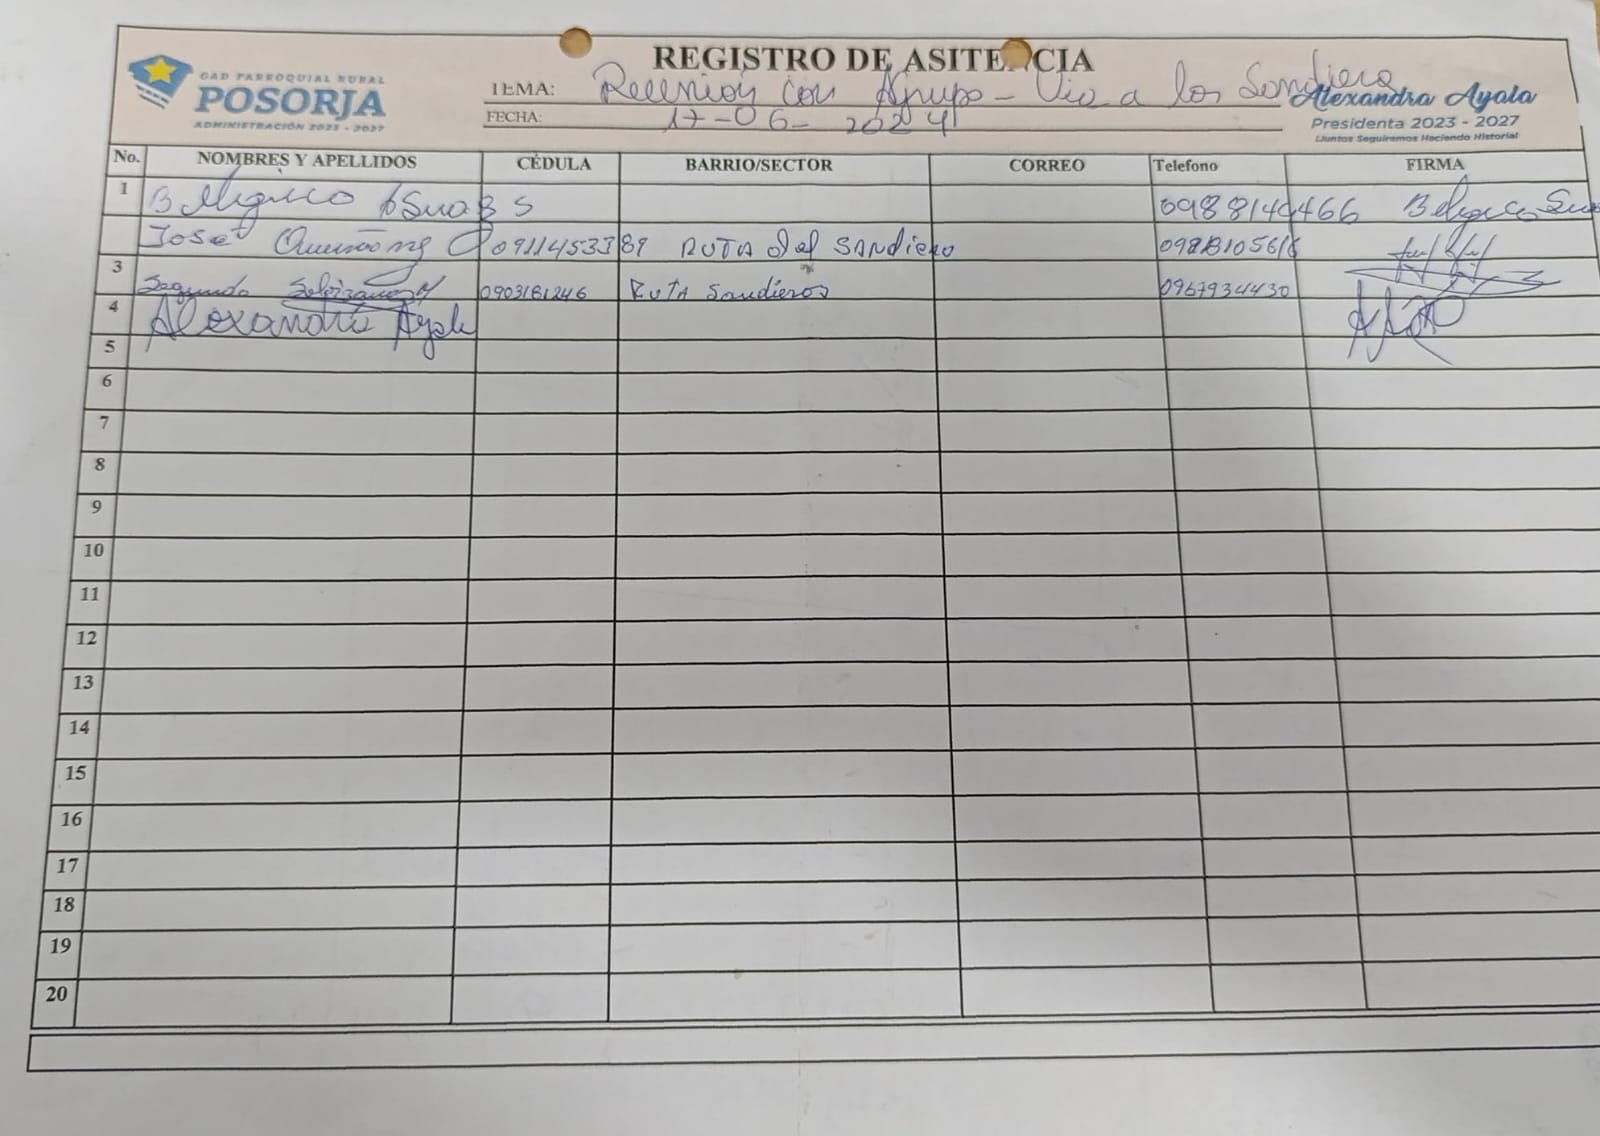 REGISTRO DE ASITENCIA
GAD PARROQUIAL RURAL
POSORJA
ADMINISTRACIÓN 2023 - 2027
TEMA: Reunión con Grupo - Via a los Sandiero
FECHA: 17-06-2024
Alexandra Ayala
Presidenta 2023 - 2027
¡Juntos Seguiremos Haciendo Historia!
No. NOMBRES Y APELLIDOS CÉDULA BARRIO/SECTOR CORREO Telefono FIRMA
1 Beligico 0988144466 Beligico
José 0911453389 RUTA del SANDiero 0988105616
3 Segundo 0903181246 RUTA Sandieros 0967934430
4 Alexandra Ayala
5
6
7
8
9
10
11
12
13
14
15
16
17
18
19
20